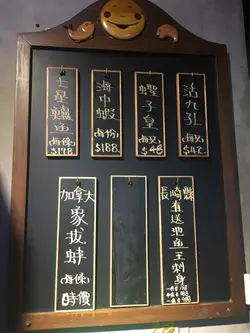 七星鱸魚
(每條)
$148
海中蝦
(每份)
$188
蟶子皇
(每隻)
$48
活九孔
(每隻)
$42
加拿大
象拔蚌
(每條)
時價
長崎縣
直送池魚王刺身